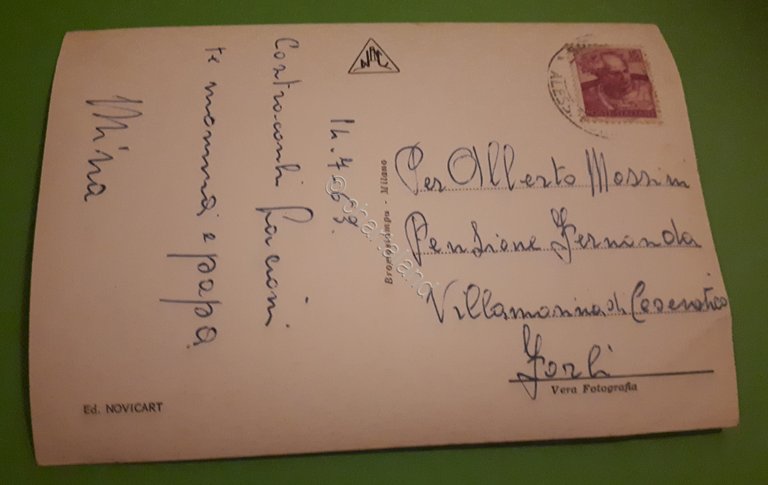 14.7.63.
Contraccambi bacioni
te mamma e papà
Mina
Ed. NOVICART
Bromostampa - Milano
Per Alberto Massini
Pensione Fernanda
Villamarina di Cesenatico
Forlì
Vera Fotografia
ALES